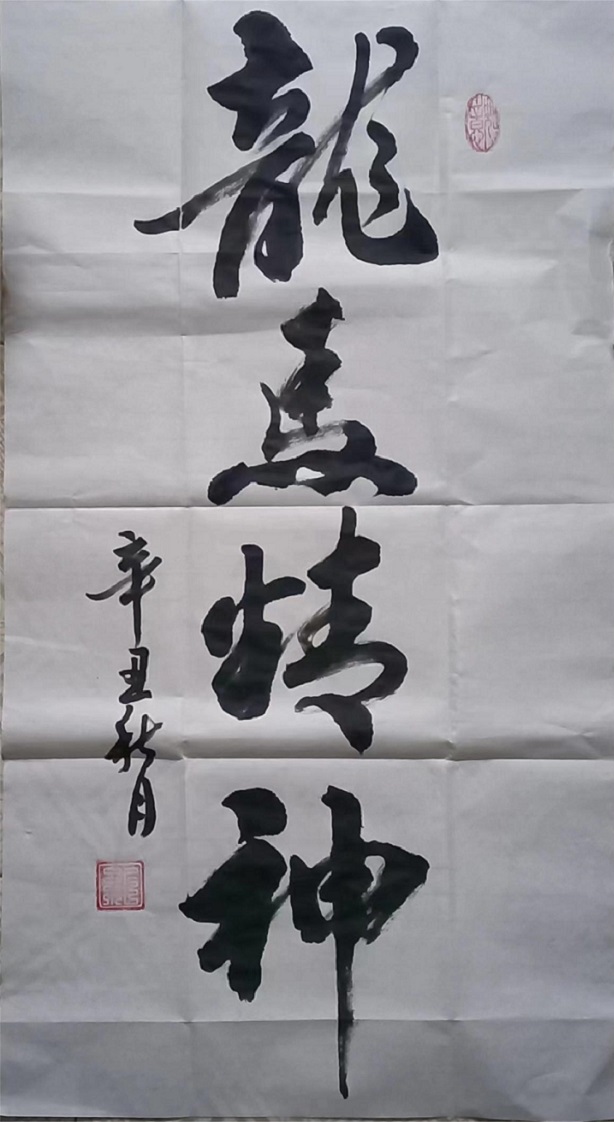 龍馬精神
辛丑秋月